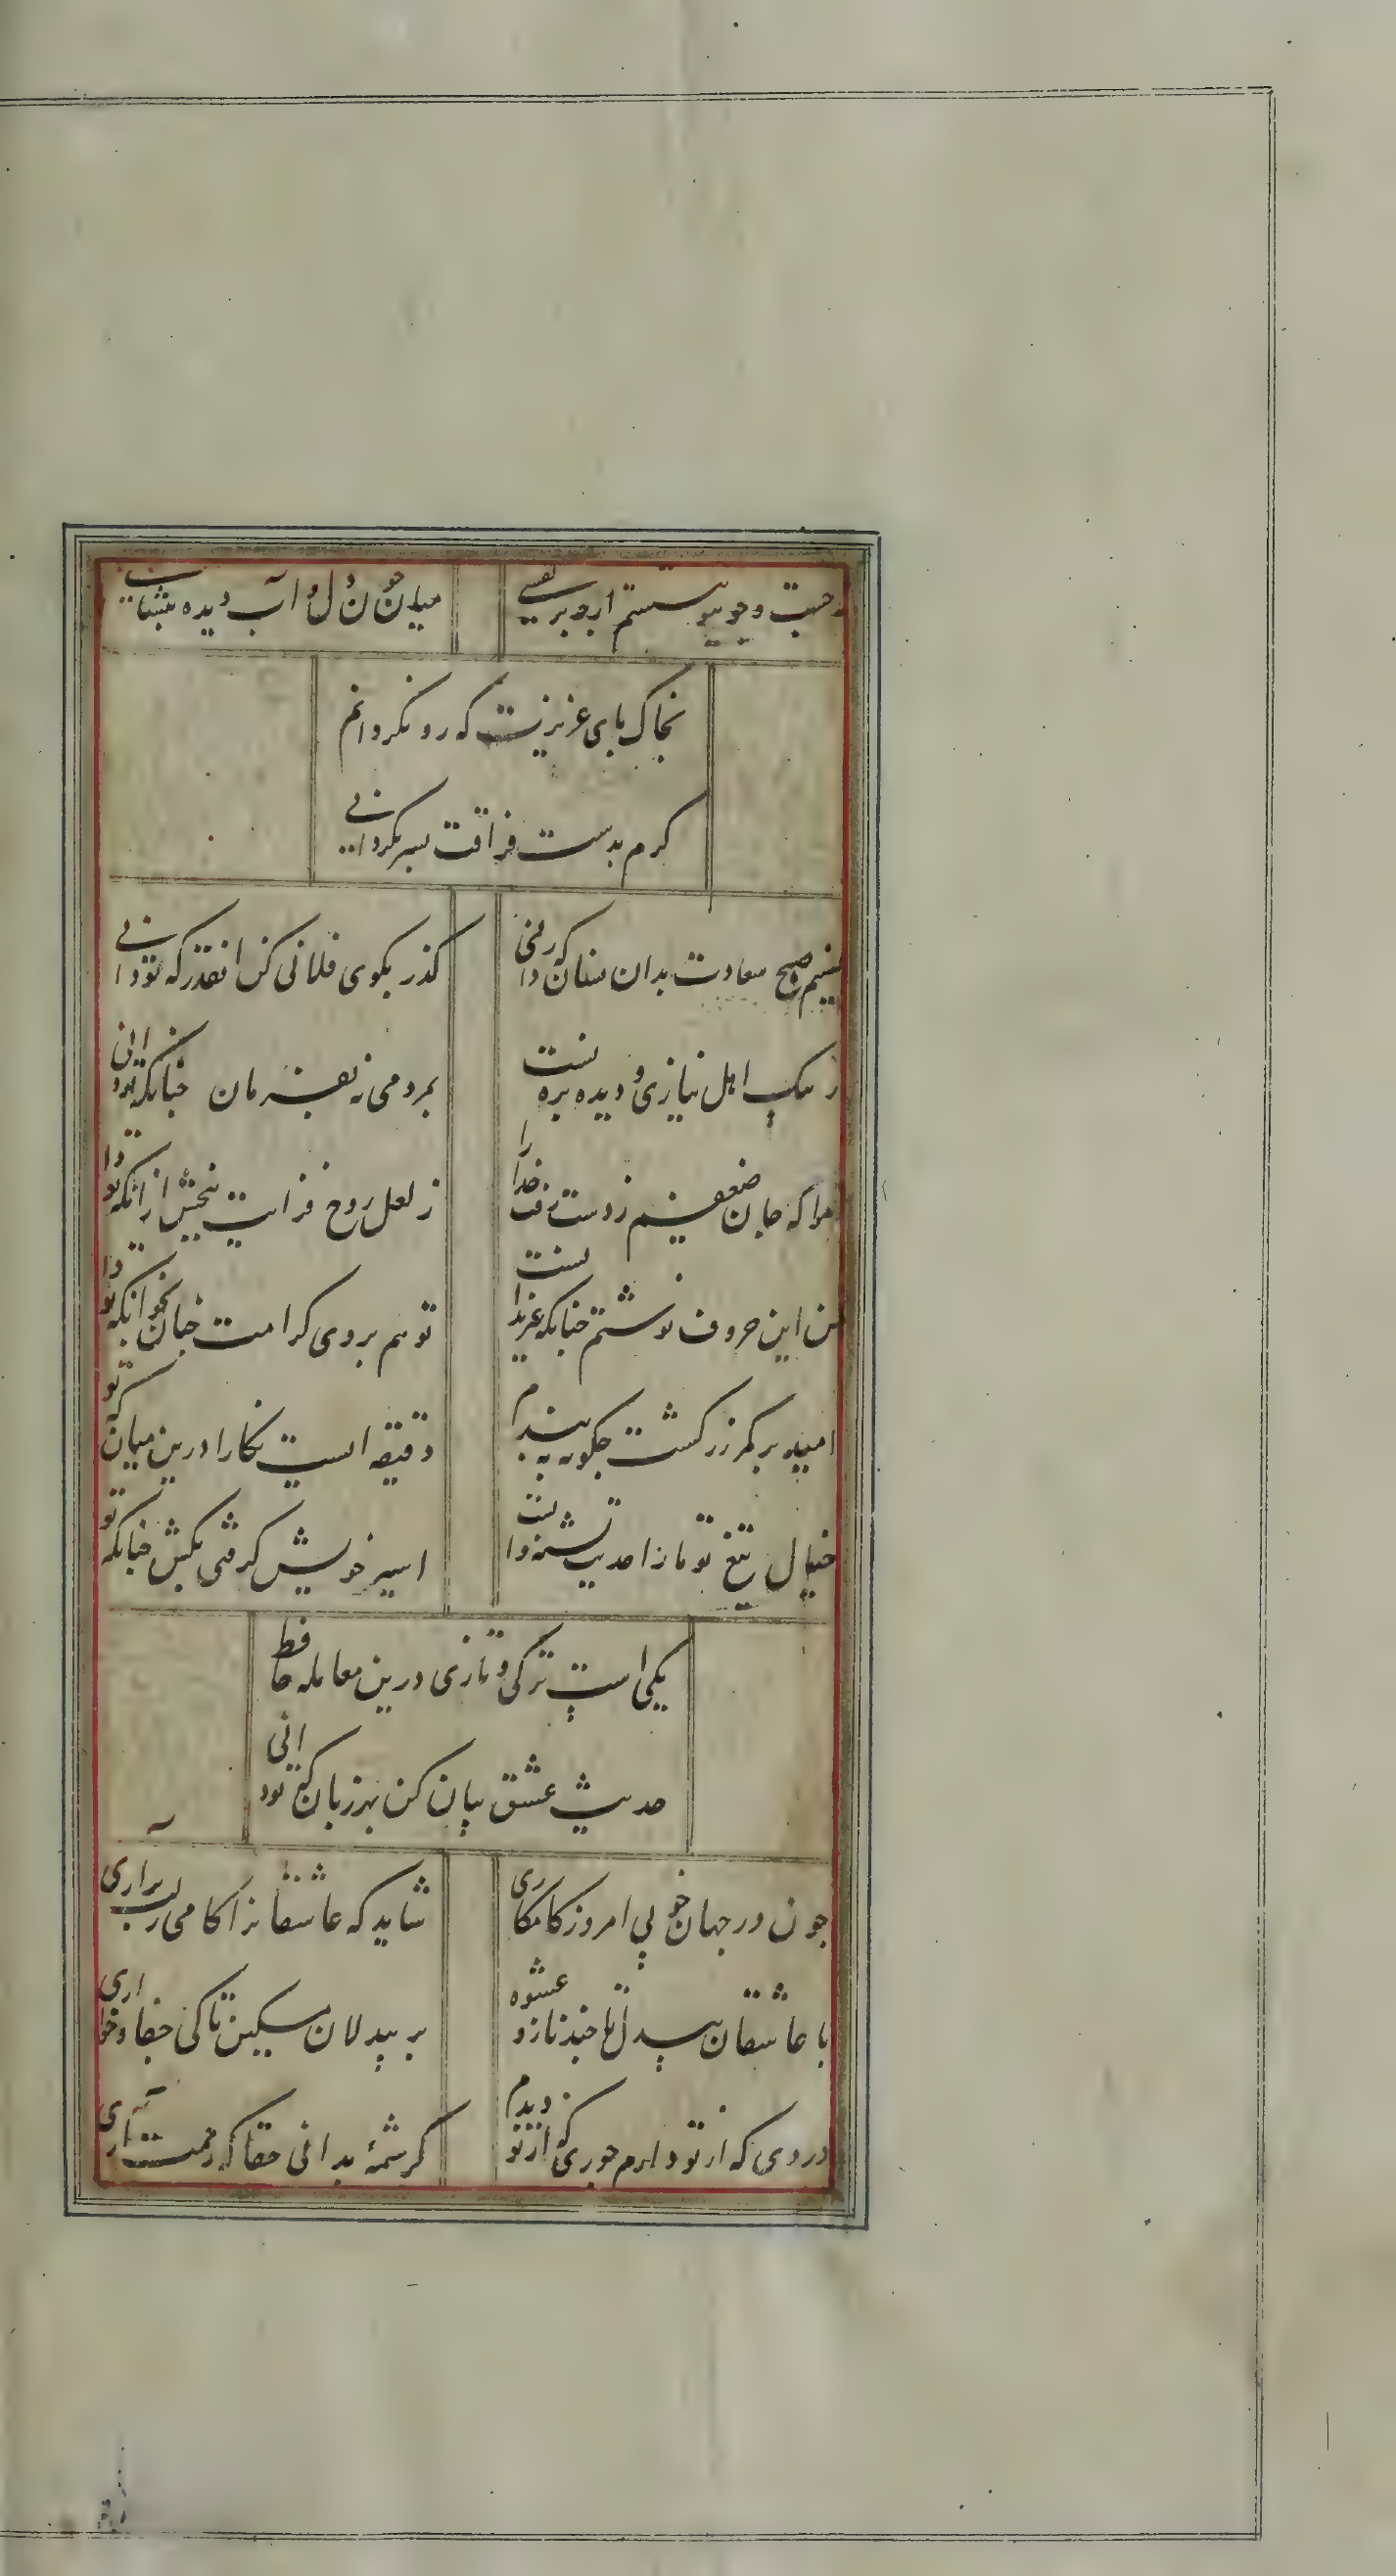 میان خون دل و آب دیده بنشانی
بخاک پای عزیزت که رو نگردانم
کرم بدست فراقت بسر بگردانی
نسیم صبح سعادت بدان نشان که تو دانی
گذر بکوی فلانی کن انقدر که تو دانی
اهل نیازی و دیده بره تست
بمردمی نه بفرمان چنانکه تو دانی
مرا که جان ضعیفم ز دست رفت خدا را
ز لعل روح فزایت ببخش ازانکه تو دا
من این حروف نوشتم چنانکه غیر ندانست
تو هم بروی کرامت چنان بخوانکه تو دا
امید بر کمر زرکشت چکونه به بندم
دقیقه ایست نکارا درین میان که تو
خیال تیغ تو با ما حدیث تشنه و ابست
اسیر خویش کرفتی بکش چنانکه تو
یکی است ترکی و تازی درین معامله حافظ
حدیث عشق بیان کن بهر زبان که تو دانی
چون در جهان خوبی امروز کامکاری
شاید که عاشقانرا کامی ز لب براری
با عاشقان بیدل تا چند ناز و عشوه
بر بیدلان مسکین تا کی جفا و خواری
دردی که از تو دارم جوری که از تو دیدم
کر شمهٔ بدانی حقا که رحمت آری